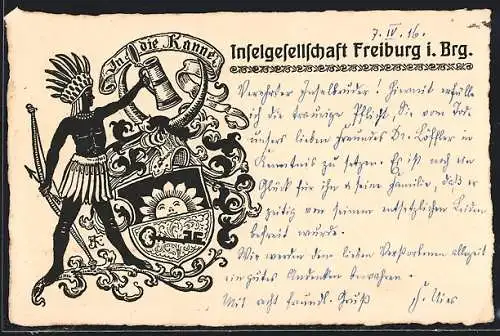 7. IV. 16.
In die Kanne!
Inselgesellschaft Freiburg i. Brg.
Verehrter Inselbruder! Hiermit erfülle
ich die traurige Pflicht, Sie vom Tod
unseres lieben Freundes Dr. Löffler in
Kenntnis zu setzen. Es ist noch ein
Glück für ihn & seine Familie, daß er
zeitig von seinem entsetzlichen Leiden
befreit wurde.
Wir werden dem lieben Verstorbenen allezeit
ein gutes Andenken bewahren.
Mit echt freundl. Gruß